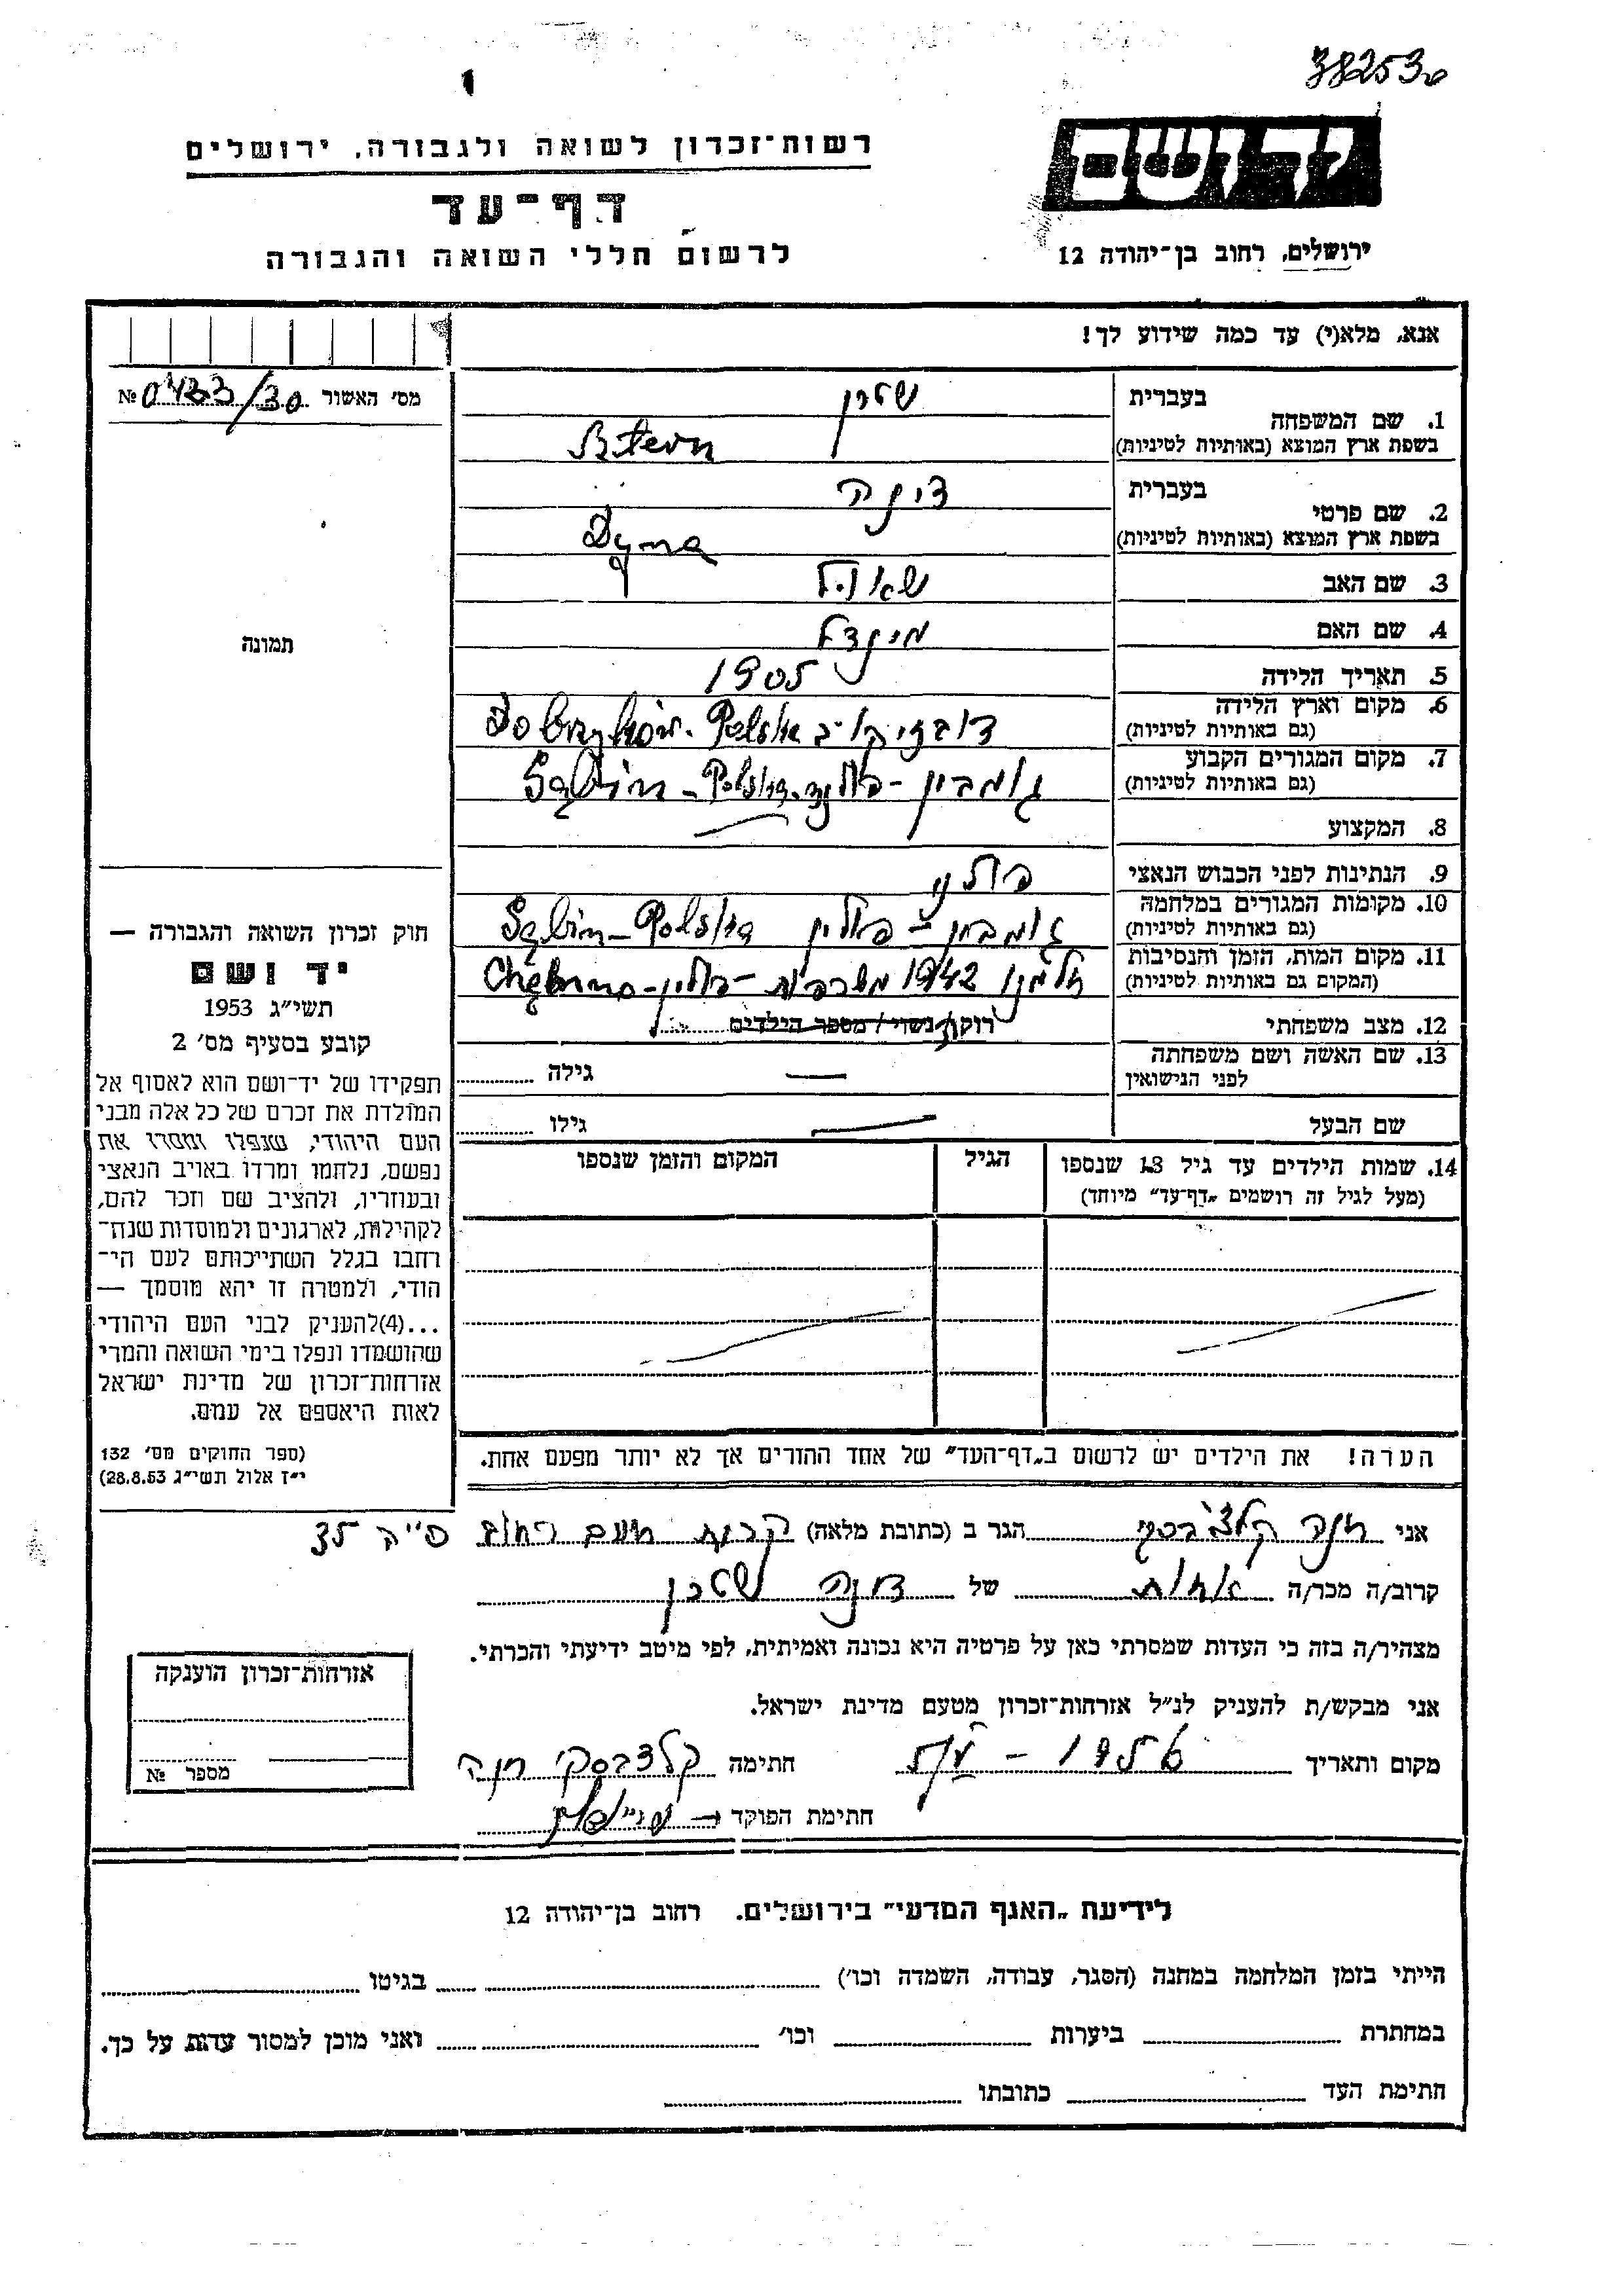 38253
רשות־זכרון לשואה ולגבורה, ירושלים
יד ושם
דף־עד
לרשום חללי השואה והגבורה
ירושלים, רחוב בן־יהודה 12
אנא, מלא(י) עד כמה שידוע לך!
מס' האשור № 0433/30
בעברית שטרן
1. שם המשפחה
בשפת ארץ המוצא (באותיות לטיניות) Sztern
בעברית דינה
2. שם פרטי
בשפת ארץ המוצא (באותיות לטיניות) Dyna
3. שם האב שאול
4. שם האם מינדל
תמונה
5. תאריך הלידה 1905
6. מקום וארץ הלידה Polska
(גם באותיות לטיניות)
7. מקום המגורים הקבוע גומבין - פולין - Polska - Gąbin
(גם באותיות לטיניות)
8. המקצוע
9. הנתינות לפני הכבוש הנאצי פולני
10. מקומות המגורים במלחמה גומבין - פולין Gąbin - Polska
(גם באותיות לטיניות)
11. מקום המות, הזמן והנסיבות חלמנו 1942 משרפות - פולין - Chełmno
(המקום גם באותיות לטיניות)
12. מצב משפחתי רווק/ נשוי / מספר הילדים
13. שם האשה ושם משפחתה — גילה
לפני הנישואין
שם הבעל — גילו
14. שמות הילדים עד גיל 13 שנספו הגיל המקום והזמן שנספו
(מעל לגיל זה רושמים „דף־עד" מיוחד)
חוק זכרון השואה והגבורה —
יד ושם
תשי"ג 1953
קובע בסעיף מס' 2
תפקידו של יד־ושם הוא לאסוף אל
המולדת את זכרם של כל אלה מבני
העם היהודי, שנפלו ומסרו את
נפשם, נלחמו ומרדו באויב הנאצי
ובעוזריו, ולהציב שם וזכר להם,
לקהילות, לארגונים ולמוסדות שנח־
רבו בגלל השתייכותם לעם הי־
הודי, ולמטרה זו יהא מוסמך —
...(4)להעניק לבני העם היהודי
שהושמדו ונפלו בימי השואה והמרי
אזרחות־זכרון של מדינת ישראל
לאות היאספם אל עמם.
(ספר החוקים מס' 132
י"ז אלול תשי"ג 28.8.53)
הערה! את הילדים יש לרשום ב„דף־העד" של אחד ההורים אך לא יותר מפעם אחת.
אני חנה קלצ'בסקי הגר ב (כתובת מלאה) קרית נועם רחוב 35
קרוב/ה מכר/ה אחות של דינה שטרן
מצהיר/ה בזה כי העדות שמסרתי כאן על פרטיה היא נכונה ואמיתית, לפי מיטב ידיעתי והכרתי.
אני מבקש/ת להעניק לנ"ל אזרחות־זכרון מטעם מדינת ישראל.
מקום ותאריך 1956 חתימה קלצבסקי חנה
חתימת הפוקד
אזרחות־זכרון הוענקה
מספר №
לידיעת „האגף המדעי" בירושלים. רחוב בן־יהודה 12
הייתי בזמן המלחמה במחנה (הסגר, עבודה, השמדה וכו') בגיטו
במחתרת ביערות וכו' ואני מוכן למסור עדות על כך.
חתימת העד כתובתו